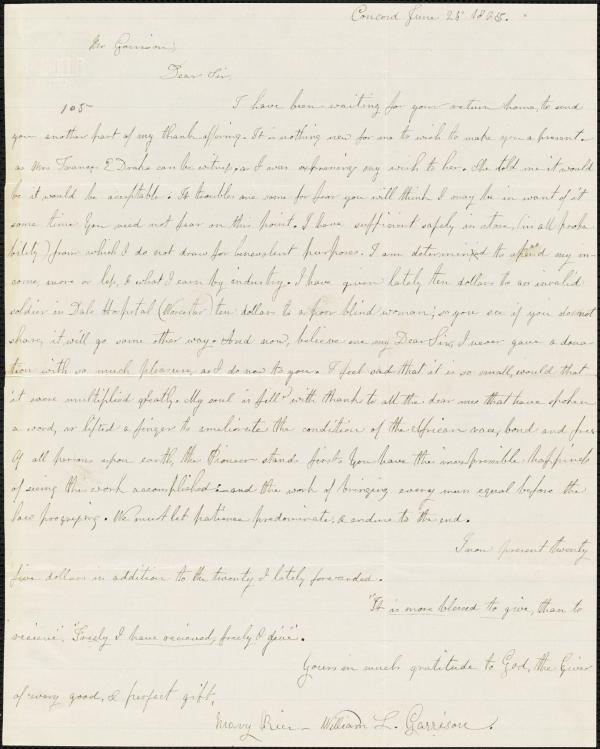 Concord June 25 1865.
Mr Garrison,
Dear Sir,
105 I have been waiting for your return home, to send
you another part of my thank offring. It is nothing new for me to wish to make you a present.
as Mrs Frances E Drake can be witness. as I was expressing my wish to her. She told me it would
be it would be acceptable. It troubles me some for fear you will think I may be in want of it
some time You need not fear on this point. I have sufficient safely in store, (in all proba
bility) from which I do not draw for benevolent purposes. I am determined to spend my in-
come, more or less, & what I earn by industry. I have given lately ten dollars to an invalid
soldier in Dale Hospital (Worcester) ten dollars to a poor blind woman; so you see if you do not
share, it will go some other way. And now, believe me my Dear Sir, I never gave a dona-
tion with so much pleasure, as I do now to you. I feel sad that it is so small, would that
it were multiplied greatly. My soul is fill'd with thanks to all the dear ones that have spoken
a word, or lifted a finger to ameliorate the condition of the African race, bond and free
Of all persons upon earth, the Pioneer stands first. You have the inexpressible happiness
of seeing the work accomplished - and the work of bringing every man equal before the
law progressing. We must let patience predominate, & endure to the end.
I now present twenty
five dollars in addition to the twenty I lately forwarded.
"It is more blessed to give, than to
recieve", "Freely I have recieved, freely I give".
Yours in much gratitude to God, the Giver
of every good, & perfect gift,
Mary Rice - William L. Garrison.